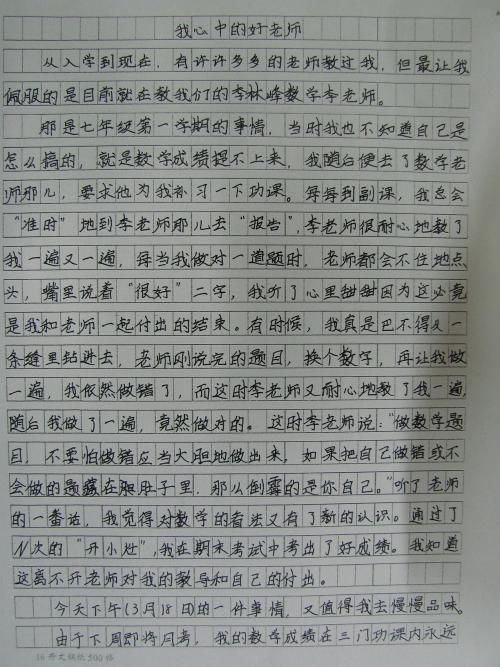 我心中的好老师
从入学到现在，有许许多多的老师教过我，但最让我
佩服的是目前就在教我们的李林峰数学李老师。
那是七年级第一学期的事情，当时我也不知道自己是
怎么搞的，就是数学成绩提不上来，我随后便去了数学老
师那儿，要求他为我补习一下功课。每每到副课，我总会
“准时”地到李老师那儿去“报告”，李老师很耐心地教了
我一遍又一遍，每当我做对一道题时，老师都会不住地点
头，嘴里说着“很好”二字，我听了心里甜甜因为这必竟
是我和老师一起付出的结束。有时候，我真是巴不得有一
条缝里钻进去，老师刚说完的题目，换个数字，再让我做
一遍，我依然做错了，而这时李老师又耐心地教了我一遍，
随后我做了一遍，竟然做对的。这时李老师说：“做数学题
目，不要怕做错应当大胆地做出来，如果把自己做错或不
会做的题藏在肚子里，那么倒霉的是你自己。”听了老师
的一番话，我觉得对数学的看法又有了新的认识。通过了
N次的“开小灶”，我在期末考试中考出了好成绩。我知道
这离不开老师对我的教导和自己的付出。
今天下午(3月18日)的一件事情，又值得我去慢慢品味。
由于下周即将月考，我的数学成绩在三门功课内永远
16开文稿纸500格